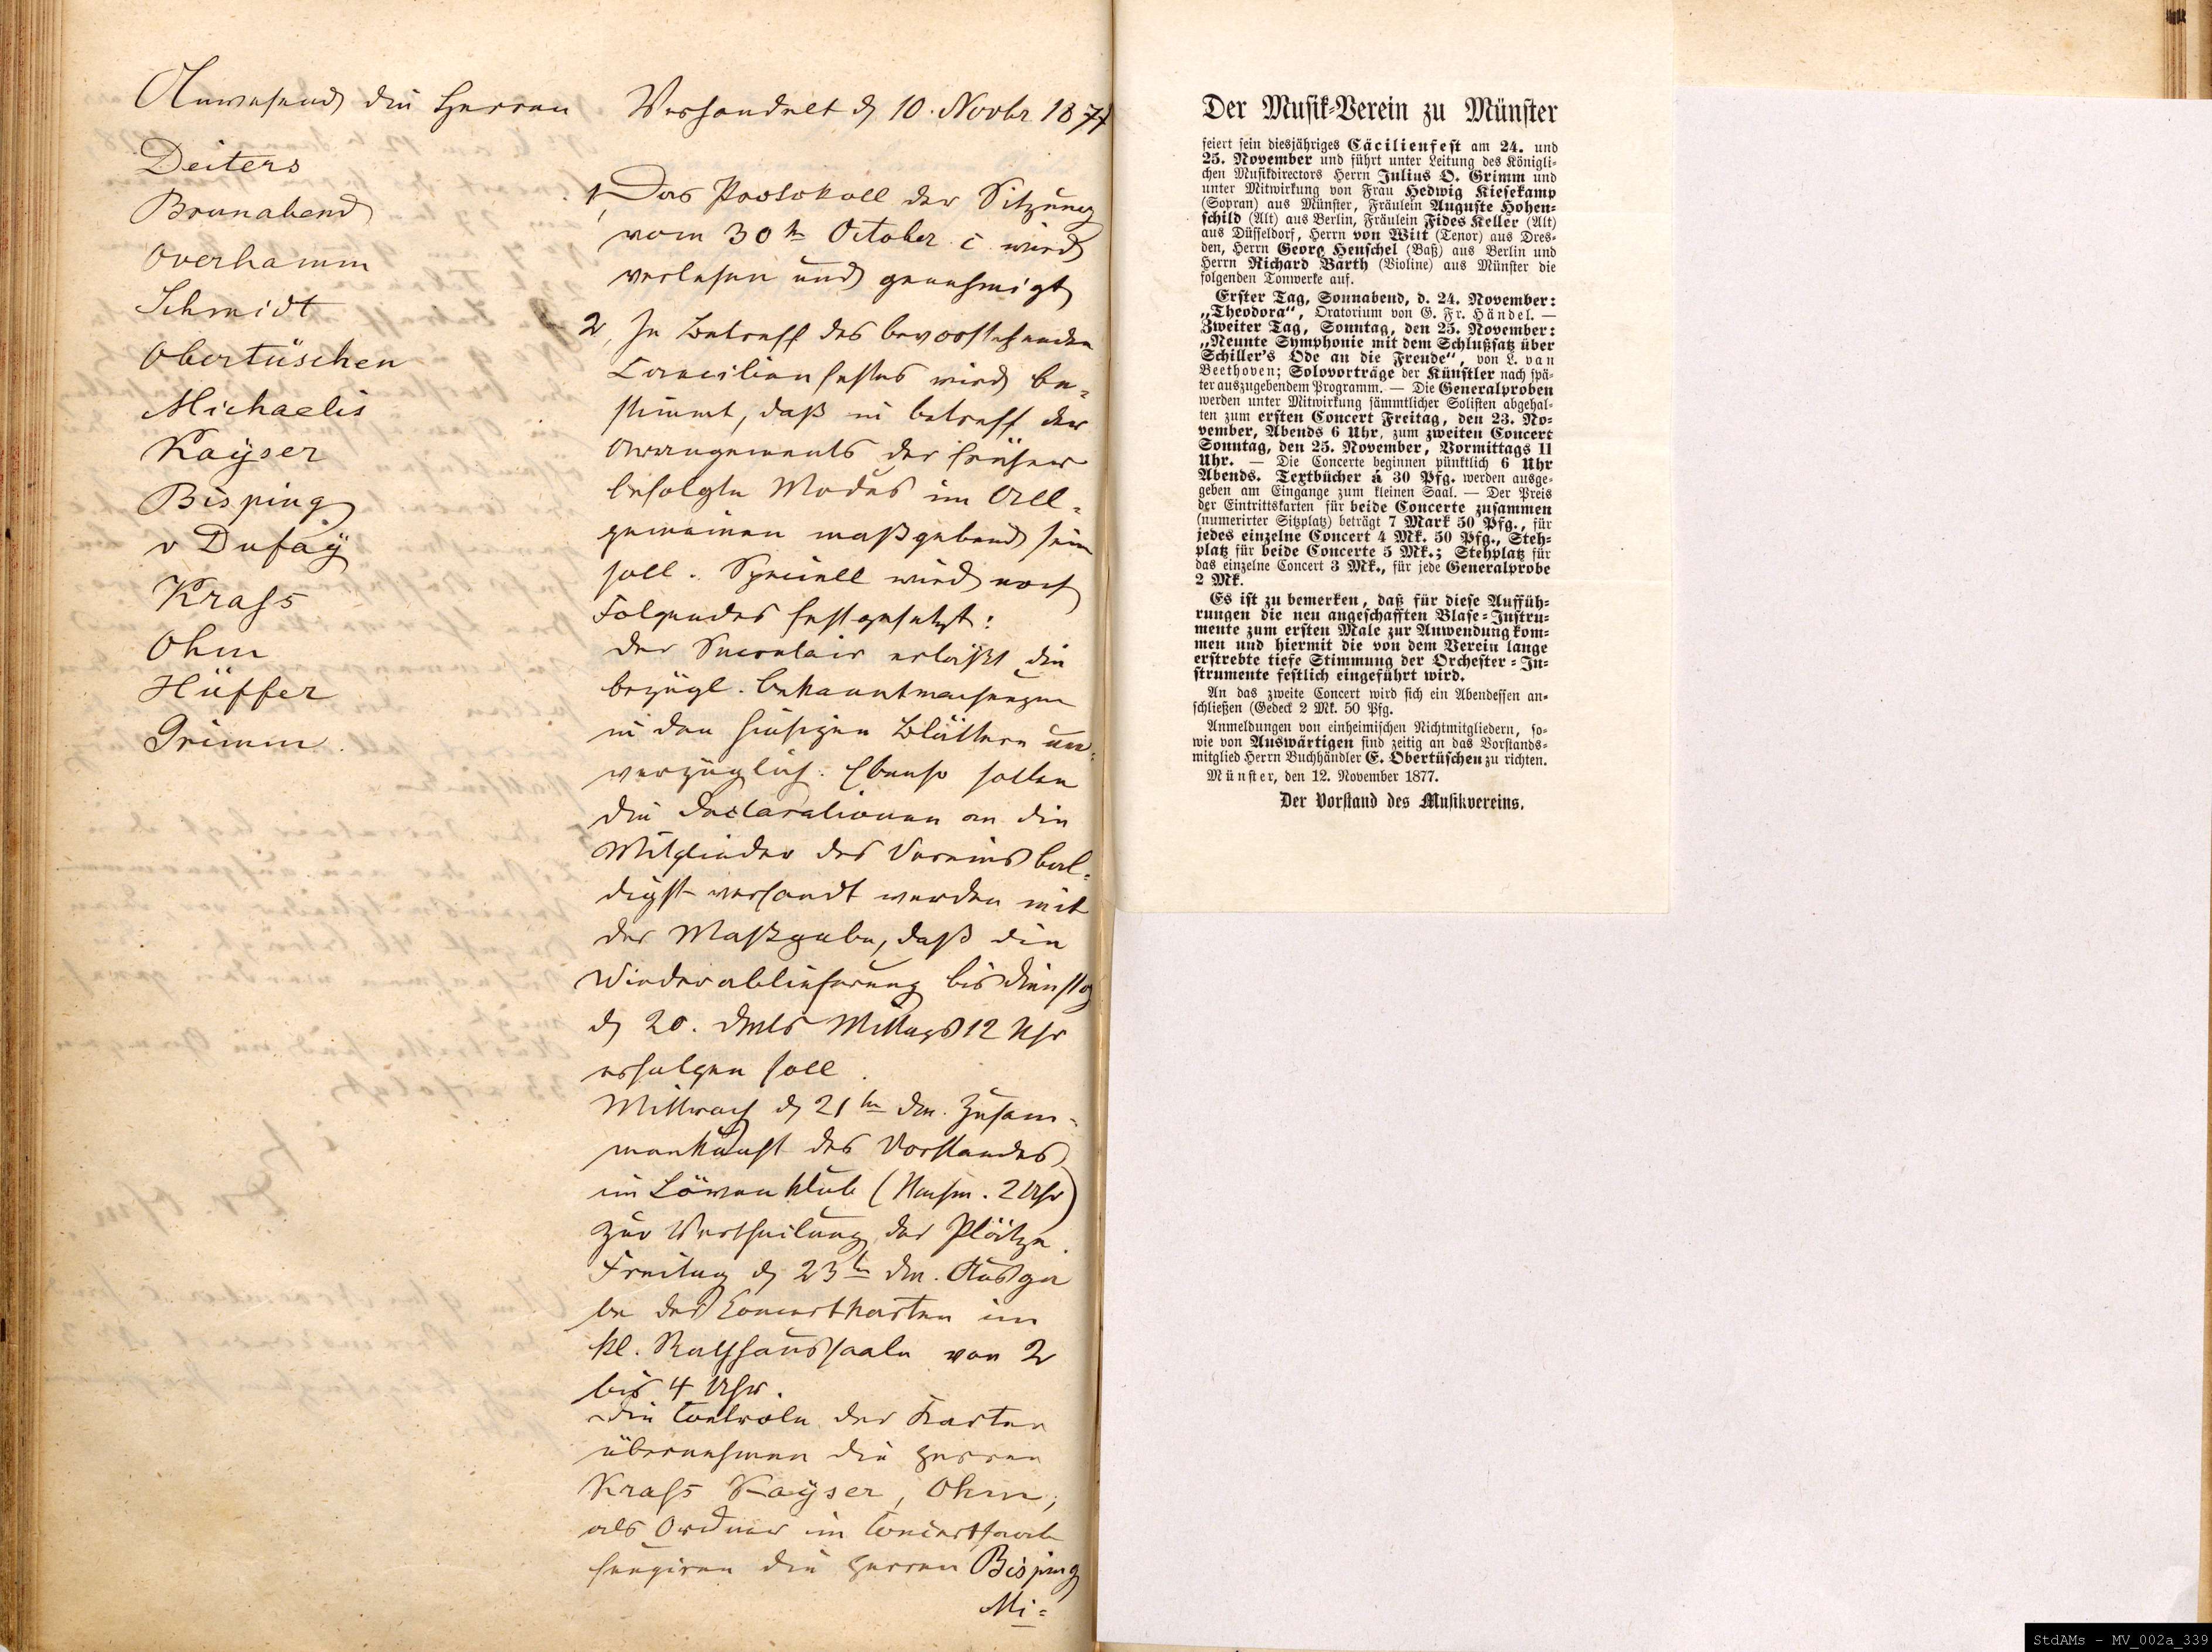 Anwesend die Herren
Deiters
Brunabend
Overhamm
Schmidt
Obertüschen
Michaelis
Kayser
Bisping
v Dufay
Krass
Ohm
Hüffer
Grimm.
Verhandelt d 10. Novbr 1877
1, Das Protokoll der Sitzung
vom 30tn October c. wird
verlesen und genehmigt
2, In Betreff des bevorstehenden
Caecilienfestes wird be-
stimmt, daß in betreff der
Arrangements der früher
befolgte Modus im All-
gemeinen maßgebend sein
soll. Speciell wird noch
Folgendes festgesetzt:
Der Secretair erläßt die
bezügl. Bekanntmachungen
in den hiesigen Blättern un-
verzüglich. Ebenso sollen
die Declarationen an die
Mitglieder des Vereins bal-
digst versandt werden mit
der Maßgabe, daß die
Wiederablieferung bis Dienstag
d 20. dmts Mittags 12 Uhr
erfolgen soll.
Mittwoch d 21tn dm. Zusam-
menkunft des Vorstandes
im Löwenklub (Nachm. 2 Uhr)
zur Vertheilung der Plätze.
Freitag d 23tn dm. Ausga
be der Concertkarten im
kl. Rathhaussaale von 2
bis 4 Uhr.
Die Controle der Karten
übernehmen die Herren
Krass Kayser, Ohm,
als Ordner im Concertsaale
fungiren die Herren Bisping
Mi=
Der Musik-Verein zu Münster
feiert sein diesjähriges Cäcilienfest am 24. und
25. November und führt unter Leitung des Königli-
chen Musikdirectors Herrn Julius O. Grimm und
unter Mitwirkung von Frau Hedwig Kiesekamp
(Sopran) aus Münster, Fräulein Auguste Hohen-
schild (Alt) aus Berlin, Fräulein Fides Keller (Alt)
aus Düsseldorf, Herrn von Witt (Tenor) aus Dres-
den, Herrn Georg Henschel (Baß) aus Berlin und
Herrn Richard Barth (Violine) aus Münster die
folgenden Tonwerke auf.
Erster Tag, Sonnabend, d. 24. November:
„Theodora“, Oratorium von G. Fr. Händel. —
Zweiter Tag, Sonntag, den 25. November:
„Neunte Symphonie mit dem Schlußsatz über
Schiller's Ode an die Freude“, von L. van
Beethoven; Solovorträge der Künstler nach spä-
ter auszugebendem Programm. — Die Generalproben
werden unter Mitwirkung sämmtlicher Solisten abgehal-
ten zum ersten Concert Freitag, den 23. No-
vember, Abends 6 Uhr, zum zweiten Concert
Sonntag, den 25. November, Vormittags 11
Uhr. — Die Concerte beginnen pünktlich 6 Uhr
Abends. Textbücher á 30 Pfg. werden ausge-
geben am Eingange zum kleinen Saal. — Der Preis
der Eintrittskarten für beide Concerte zusammen
(numerirter Sitzplatz) beträgt 7 Mark 50 Pfg., für
jedes einzelne Concert 4 Mk. 50 Pfg., Steh-
platz für beide Concerte 5 Mk.; Stehplatz für
das einzelne Concert 3 Mk., für jede Generalprobe
2 Mk.
Es ist zu bemerken, daß für diese Auffüh-
rungen die neu angeschafften Blase-Instru-
mente zum ersten Male zur Anwendung kom-
men und hiermit die von dem Verein lange
erstrebte tiefe Stimmung der Orchester-In-
strumente festlich eingeführt wird.
An das zweite Concert wird sich ein Abendessen an-
schließen (Gedeck 2 Mk. 50 Pfg.
Anmeldungen von einheimischen Nichtmitgliedern, so-
wie von Auswärtigen sind zeitig an das Vorstands-
mitglied Herrn Buchhändler E. Obertüschen zu richten.
Münster, den 12. November 1877.
Der Vorstand des Musikvereins.
StdAMs - MV_002a_339